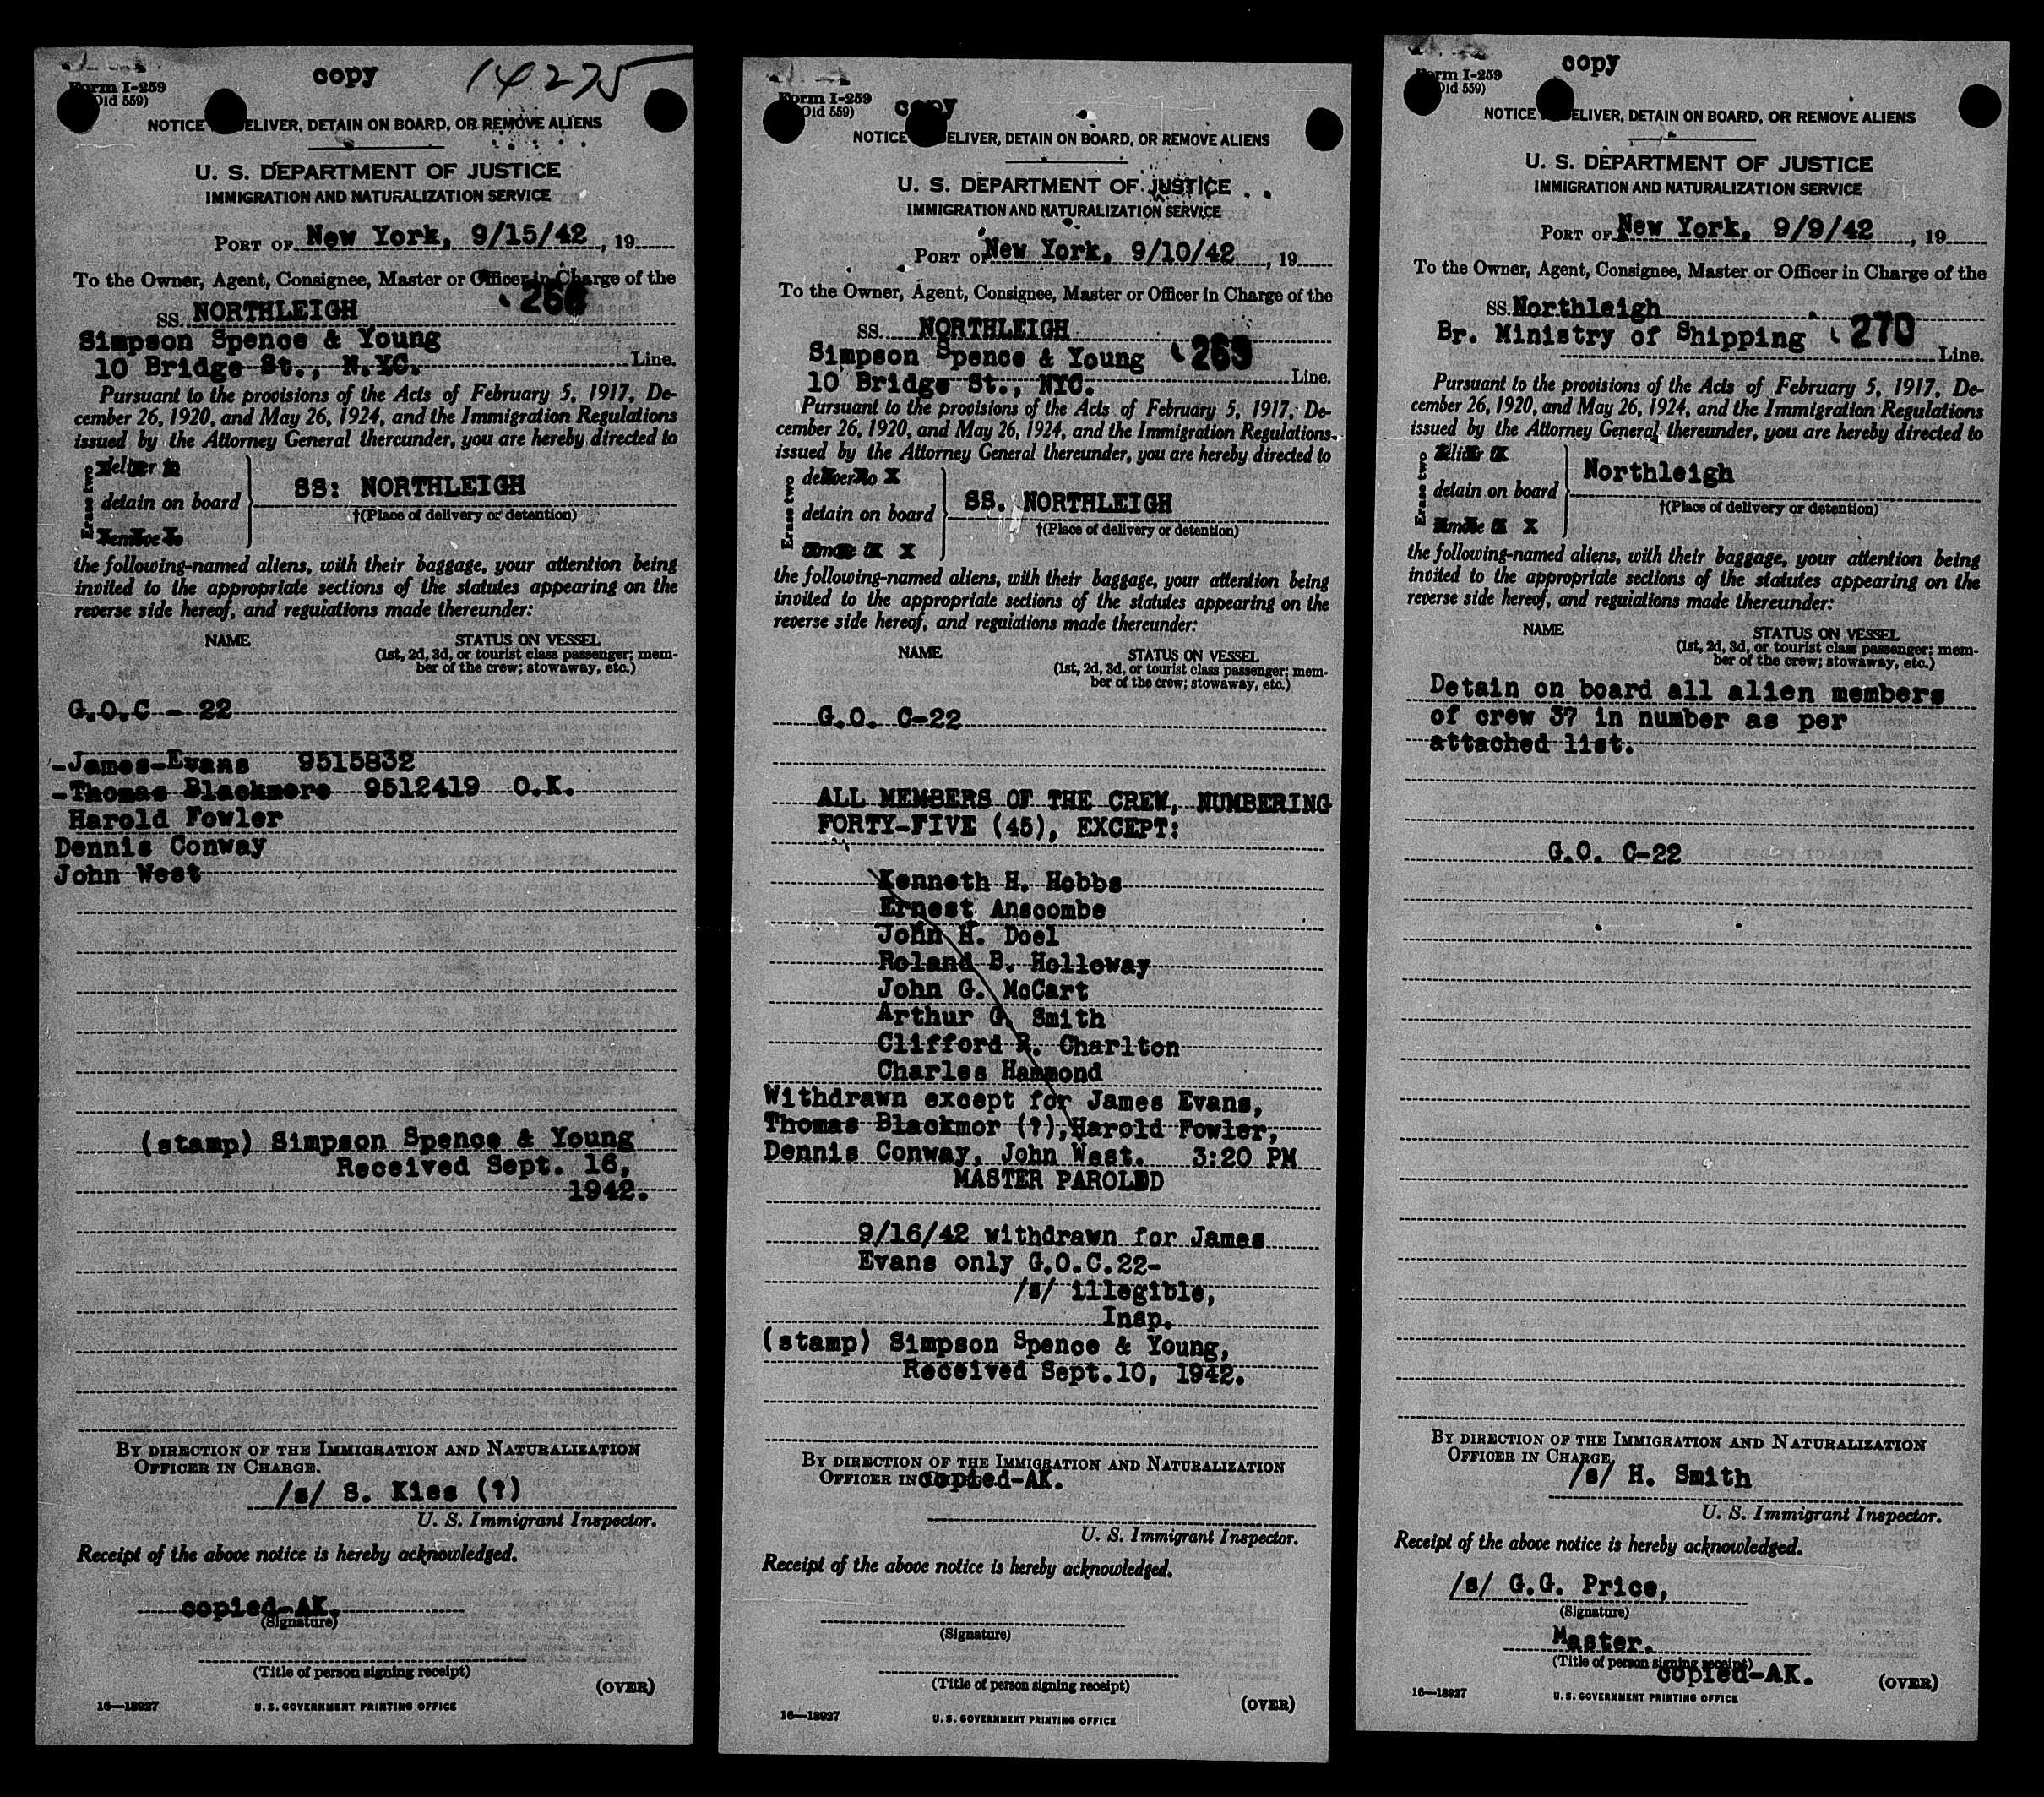 copy
14275
Form I-259
(Old 559)
NOTICE ELIVER, DETAIN ON BOARD, OR REMOVE ALIENS
U. S. DEPARTMENT OF JUSTICE
IMMIGRATION AND NATURALIZATION SERVICE
PORT OF New York, 9/15/42, 19
To the Owner, Agent, Consignee, Master or Officer in Charge of the
SS. NORTHLEIGH
Simpson Spence & Young
10 Bridge St., N.YC. Line.
Pursuant to the provisions of the Acts of February 5, 1917, De-
cember 26, 1920, and May 26, 1924, and the Immigration Regulations
issued by the Attorney General thereunder, you are hereby directed to
Erase two
deliver to
detain on board
remove to
SS: NORTHLEIGH
†(Place of delivery or detention)
the following-named aliens, with their baggage, your attention being
invited to the appropriate sections of the statutes appearing on the
reverse side hereof, and regulations made thereunder:
NAME STATUS ON VESSEL
(1st, 2d, 3d, or tourist class passenger; mem-
ber of the crew; stowaway, etc.)
G.O.C - 22
-James-Evans 9515832
-Thomas Blackmore 9512419 O.K.
Harold Fowler
Dennis Conway
John West
(stamp) Simpson Spence & Young
Received Sept. 16,
1942.
BY DIRECTION OF THE IMMIGRATION AND NATURALIZATION
OFFICER IN CHARGE.
/s/ S. Kies (?)
U. S. Immigrant Inspector.
Receipt of the above notice is hereby acknowledged.
copied-AK.
(Signature)
(Title of person signing receipt)
(OVER)
16—18927 U. S. GOVERNMENT PRINTING OFFICE
Form I-259
(Old 559)
copy
NOTICE ELIVER, DETAIN ON BOARD, OR REMOVE ALIENS
U. S. DEPARTMENT OF JUSTICE
IMMIGRATION AND NATURALIZATION SERVICE
PORT OF New York, 9/10/42, 19
To the Owner, Agent, Consignee, Master or Officer in Charge of the
SS. NORTHLEIGH
Simpson Spence & Young 269
10 Bridge St., NYC. Line.
Pursuant to the provisions of the Acts of February 5, 1917, De-
cember 26, 1920, and May 26, 1924, and the Immigration Regulations
issued by the Attorney General thereunder, you are hereby directed to
Erase two
deliver to X
detain on board
remove to X
SS. NORTHLEIGH
†(Place of delivery or detention)
the following-named aliens, with their baggage, your attention being
invited to the appropriate sections of the statutes appearing on the
reverse side hereof, and regulations made thereunder:
NAME STATUS ON VESSEL
(1st, 2d, 3d, or tourist class passenger; mem-
ber of the crew; stowaway, etc.)
G.O. C-22
ALL MEMBERS OF THE CREW, NUMBERING
FORTY-FIVE (45), EXCEPT:
Kenneth H. Hobbs
Ernest Anscombe
John H. Doel
Roland B. Holloway
John G. McCart
Arthur G. Smith
Clifford R. Charlton
Charles Hammond
Withdrawn except for James Evans,
Thomas Blackmor (?), Harold Fowler,
Dennis Conway, John West. 3:20 PM
MASTER PAROLED
9/16/42 withdrawn for James
Evans only G.O.C.22-
/s/ illegible,
Insp.
(stamp) Simpson Spence & Young,
Received Sept.10, 1942.
BY DIRECTION OF THE IMMIGRATION AND NATURALIZATION
OFFICER IN copied-AK.
U. S. Immigrant Inspector.
Receipt of the above notice is hereby acknowledged.
(Signature)
(Title of person signing receipt)
(OVER)
16—18927 U. S. GOVERNMENT PRINTING OFFICE
copy
Form I-259
(Old 559)
NOTICE ELIVER, DETAIN ON BOARD, OR REMOVE ALIENS
U. S. DEPARTMENT OF JUSTICE
IMMIGRATION AND NATURALIZATION SERVICE
PORT OF New York, 9/9/42, 19
To the Owner, Agent, Consignee, Master or Officer in Charge of the
SS. Northleigh
Br. Ministry of Shipping 270
Line.
Pursuant to the provisions of the Acts of February 5, 1917, De-
cember 26, 1920, and May 26, 1924, and the Immigration Regulations
issued by the Attorney General thereunder, you are hereby directed to
Erase two
detain on board
Northleigh
†(Place of delivery or detention)
the following-named aliens, with their baggage, your attention being
invited to the appropriate sections of the statutes appearing on the
reverse side hereof, and regulations made thereunder:
NAME STATUS ON VESSEL
(1st, 2d, 3d, or tourist class passenger; mem-
ber of the crew; stowaway, etc.)
Detain on board all alien members
of crew 37 in number as per
attached list.
G.O. C-22
BY DIRECTION OF THE IMMIGRATION AND NATURALIZATION
OFFICER IN CHARGE.
/s/ H. Smith
U. S. Immigrant Inspector.
Receipt of the above notice is hereby acknowledged.
/s/ G.G. Price,
(Signature)
Master.
(Title of person signing receipt)
copied-AK.
(OVER)
16—18927 U. S. GOVERNMENT PRINTING OFFICE